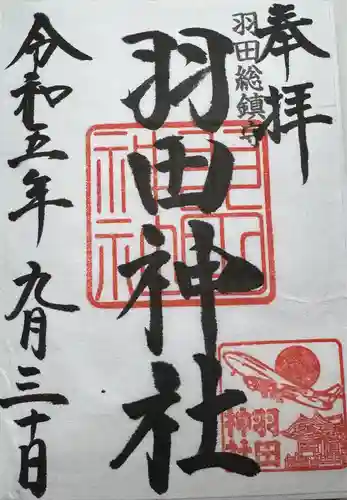 奉拝
羽田総鎮守
羽田神社
令和五年九月三十日
羽田神社
羽田
神社